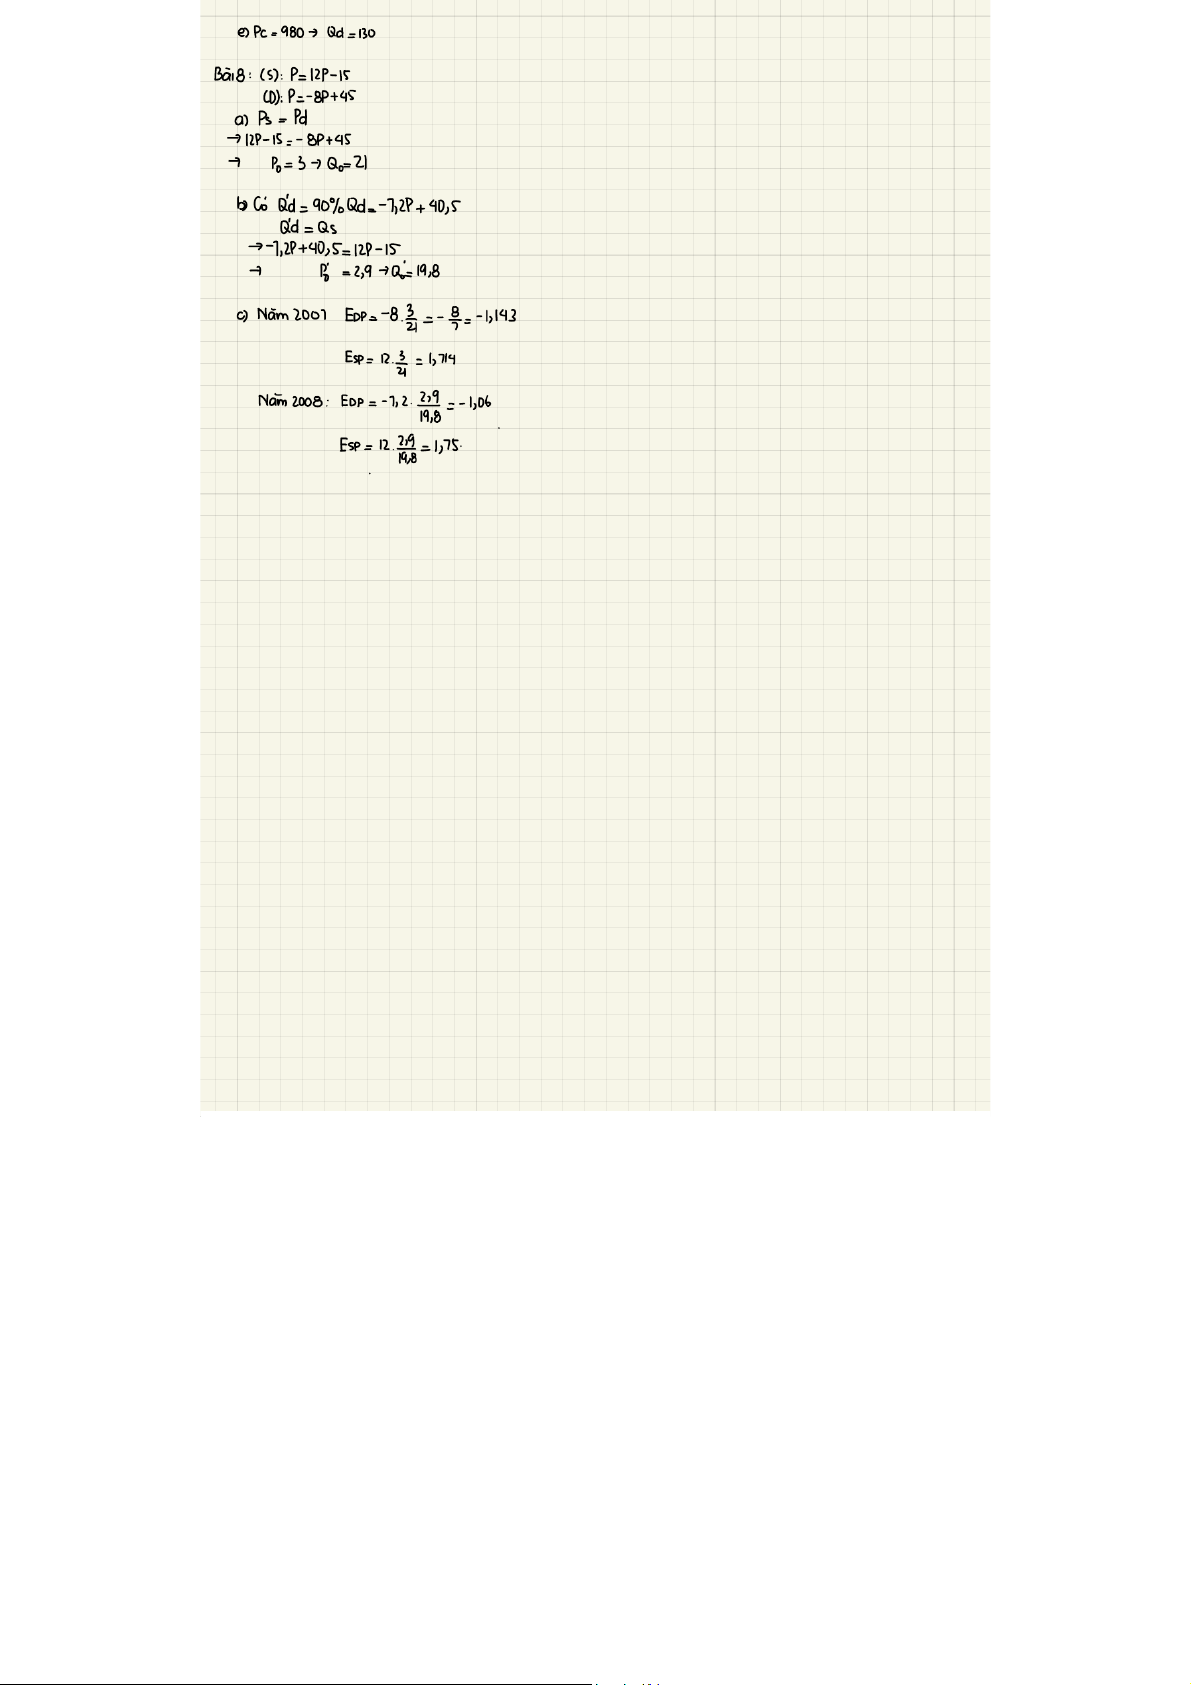 e) Pc = 980 → Qd = 130
Bài 8: (S): P = 12P - 15
(D): P = -8P + 45
a) Ps = Pd
→ 12P - 15 = - 8P + 45
→ P₀ = 3 → Q₀ = 21
b) Có Q'd = 90% Qd = -7,2P + 40,5
Q'd = Qs
→ -7,2P + 40,5 = 12P - 15
→ P₀' = 2,9 → Q₀' = 19,8
c) Năm 2007 EDP = -8 . 3/21 = - 8/7 = -1,143
ESP = 12 . 3/21 = 1,714
Năm 2008: EDP = -7,2 . 2,9/19,8 = - 1,06
ESP = 12 . 2,9/19,8 = 1,75